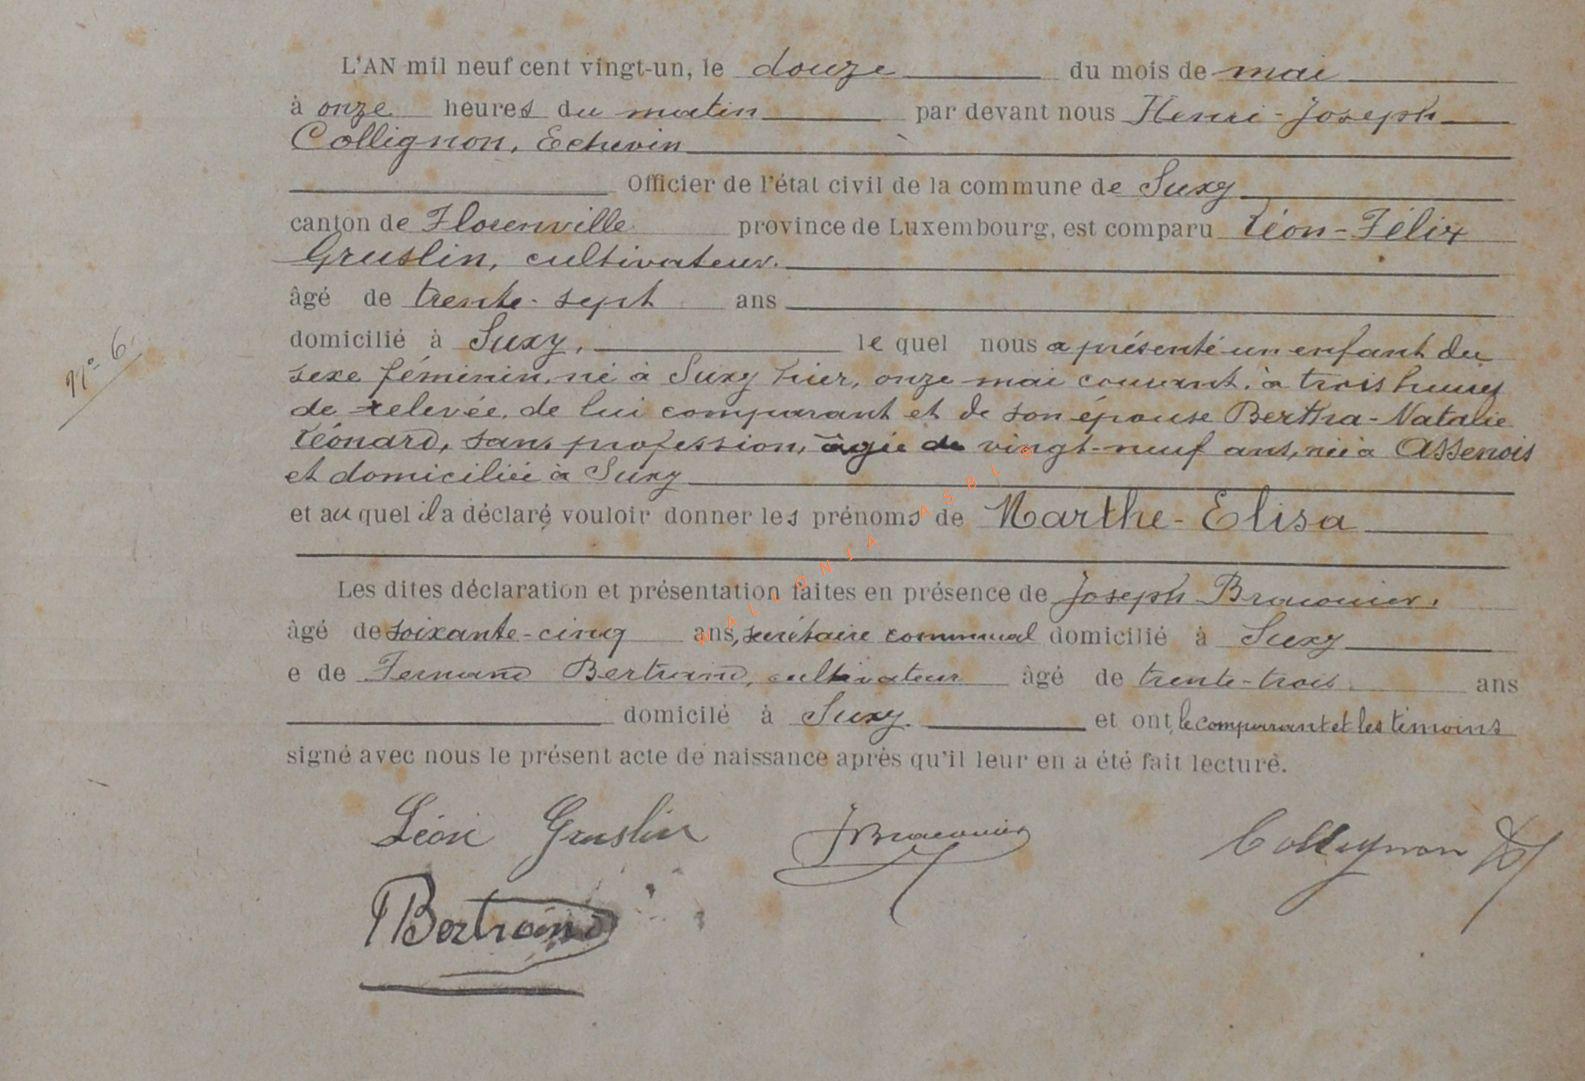 L'AN mil neuf cent vingt-un, le douze du mois de mai
à onze heures du matin par devant nous Henri-Joseph
Collignon, Echevin
Officier de l'état civil de la commune de Suxy
canton de Florenville province de Luxembourg, est comparu Léon-Félix
Gruslin, cultivateur.
âgé de trente-sept ans
domicilié à Suxy, le quel nous a présenté un enfant du
N° 6.
sexe féminin, né à Suxy hier, onze mai courant, à trois heures
de relevée, de lui comparant et de son épouse Bertha-Natalie
Léonard, sans profession, âgée de vingt-neuf ans, née à Assenois
et domiciliée à Suxy
et au quel il a déclaré vouloir donner les prénoms de Marthe-Elisa
Les dites déclaration et présentation faites en présence de Joseph Braconier,
âgé de soixante-cinq ans, secrétaire communal domicilié à Suxy
e de Fernand Bertrand, cultivateur âgé de trente-trois ans
domicilé à Suxy. et ont, le comparant et les témoins
signé avec nous le présent acte de naissance après qu'il leur en a été fait lecture.
Léon Gruslin JBraconier Collignon HJ
FBertrand